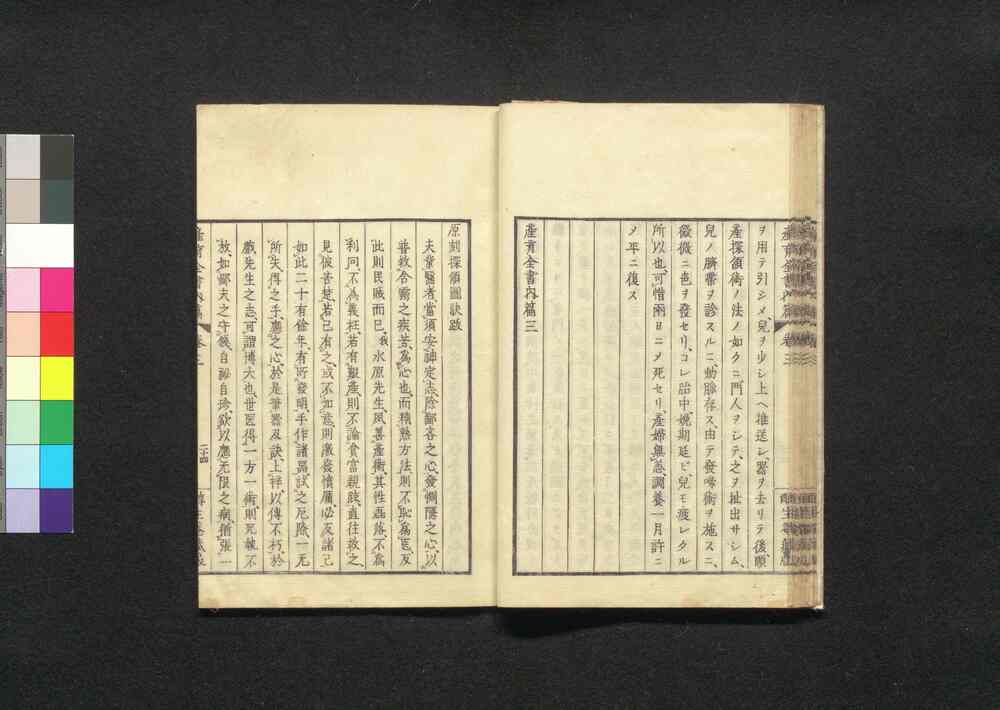 ヲ用テ引シメ、兒ヲ少シ上ヘ推送シ、器ヲ去リテ後、順
產探頷術ノ法ノ如クニ、門人ヲシテ、之ヲ扯出サシム、
兒ノ臍帶ヲ診スルニ、動脈存ス、由テ發啼術ヲ施スニ、
微微ニ色ヲ發セリ、コレ胎中娩期延ビ、兒モ疲レタル
所以也、可惜兩日ニメ死セリ、產婦無恙、調養一月許ニ
メ平ニ復ス
產育全書內篇三
原刻探頷圖訣跋
夫業醫者、當須安神定志、除鄙吝之心、發惻隱之心、以
普救含靈之疾苦、爲心也、而精熟方法、則不恥爲醫、反
此則民賊而已、我水原先生、夙善產術、其性磊落、不爲
利回、不爲義枉、若有艱產、則不論貧富親疎、直往救之、
見彼苦楚、若己有之、或不如意、則激發憤厲、必反諸己、
如此二十有餘年、有所發明、手作諸器、試之厄險、一无
所失、得之手、應之心、於是筆器及訣上梓、以傳不朽、於
戲先生之志、可謂博大也、世医得一方一術、則死執不
放、如鄙夫之守錢、自祕自珍、欲以應无限之病、猶張一
產育全書內篇 卷三 二十四